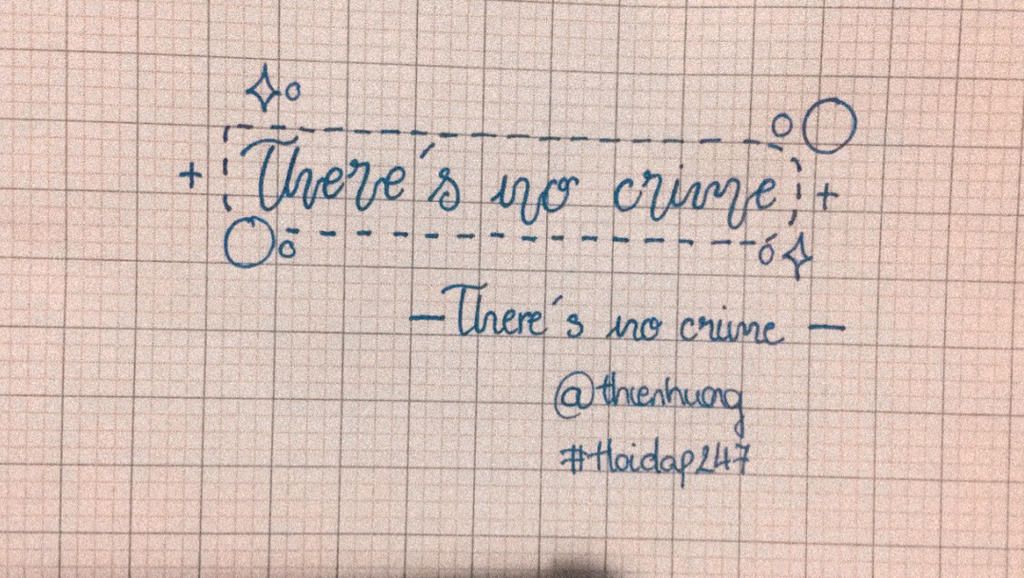 There's no crime
- There's no crime -
@thienhuong
#Hoidap247